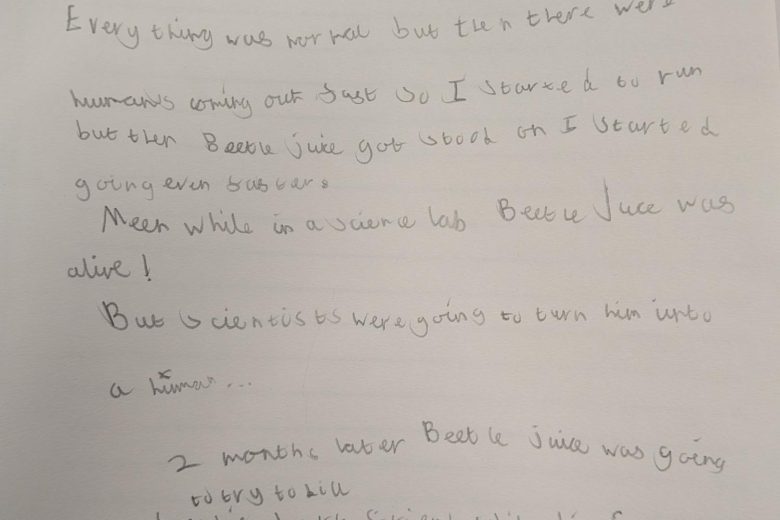 Everything was normal but then there were
humans coming out fast so I started to run
but then Beetle juice got stood on I started
going even faster.
Meen while in a science lab Beetle Juce was
alive!
But scientists were going to turn him into
a human...
2 months later Beetle juice was going
to try to kill